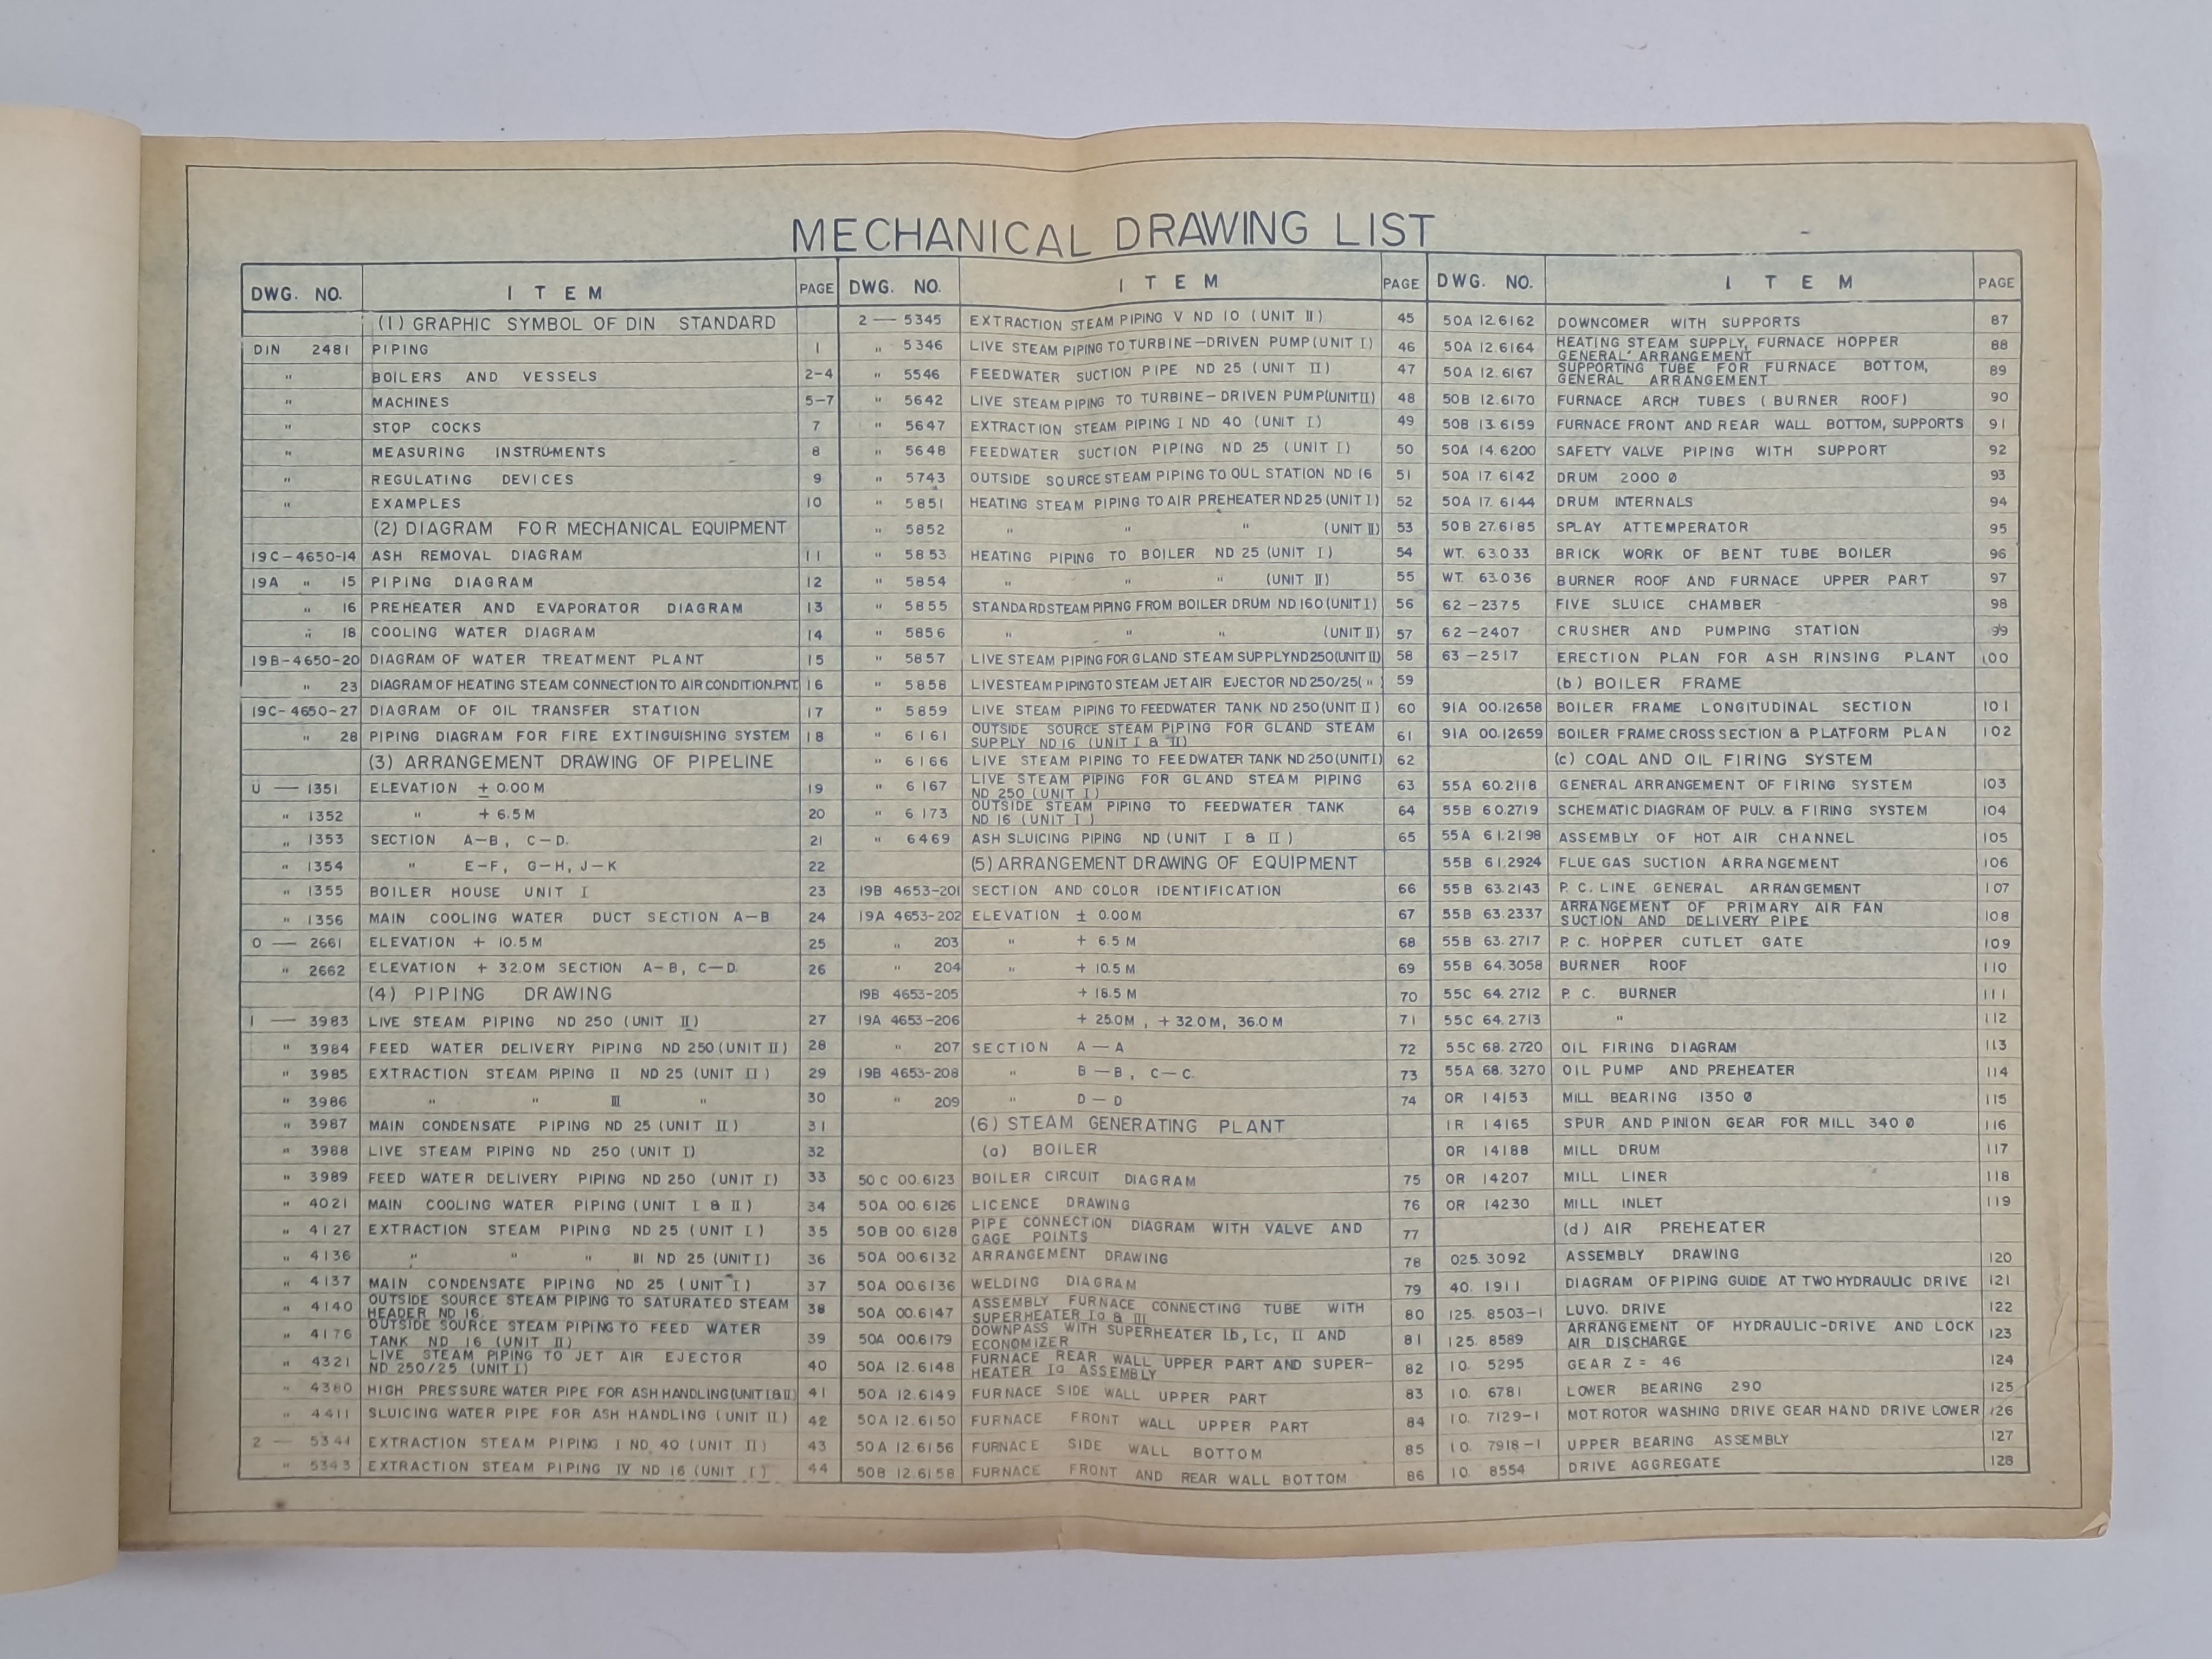 MECHANICAL DRAWING LIST
DWG. NO. ITEM PAGE
(1) GRAPHIC SYMBOL OF DIN STANDARD
DIN 2481 PIPING 1
" BOILERS AND VESSELS 2-4
" MACHINES 5-7
" STOP COCKS 7
" MEASURING INSTRUMENTS 8
" REGULATING DEVICES 9
" EXAMPLES 10
(2) DIAGRAM FOR MECHANICAL EQUIPMENT
19C-4650-14 ASH REMOVAL DIAGRAM 11
19A " 15 PIPING DIAGRAM 12
" 16 PREHEATER AND EVAPORATOR DIAGRAM 13
" 18 COOLING WATER DIAGRAM 14
19B-4650-20 DIAGRAM OF WATER TREATMENT PLANT 15
" 23 DIAGRAM OF HEATING STEAM CONNECTION TO AIR CONDITION.PNT. 16
19C-4650-27 DIAGRAM OF OIL TRANSFER STATION 17
" 28 PIPING DIAGRAM FOR FIRE EXTINGUISHING SYSTEM 18
(3) ARRANGEMENT DRAWING OF PIPELINE
U — 1351 ELEVATION ± 0.00 M 19
" 1352 " + 6.5 M 20
" 1353 SECTION A-B, C-D. 21
" 1354 " E-F, G-H, J-K 22
" 1355 BOILER HOUSE UNIT I 23
" 1356 MAIN COOLING WATER DUCT SECTION A-B 24
O — 2661 ELEVATION + 10.5 M 25
" 2662 ELEVATION + 32.0M SECTION A-B, C-D. 26
(4) PIPING DRAWING
1 — 3983 LIVE STEAM PIPING ND 250 (UNIT II) 27
" 3984 FEED WATER DELIVERY PIPING ND 250 (UNIT II) 28
" 3985 EXTRACTION STEAM PIPING II ND 25 (UNIT II) 29
" 3986 " " III " 30
" 3987 MAIN CONDENSATE PIPING ND 25 (UNIT II) 31
" 3988 LIVE STEAM PIPING ND 250 (UNIT I) 32
" 3989 FEED WATER DELIVERY PIPING ND 250 (UNIT I) 33
" 4021 MAIN COOLING WATER PIPING (UNIT I & II) 34
" 4127 EXTRACTION STEAM PIPING ND 25 (UNIT I) 35
" 4136 " " " III ND 25 (UNIT I) 36
" 4137 MAIN CONDENSATE PIPING ND 25 (UNIT I) 37
" 4140 OUTSIDE SOURCE STEAM PIPING TO SATURATED STEAM
HEADER ND 16. 38
" 4176 OUTSIDE SOURCE STEAM PIPING TO FEED WATER
TANK ND 16 (UNIT II) 39
" 4321 LIVE STEAM PIPING TO JET AIR EJECTOR
ND 250/25 (UNIT I) 40
" 4380 HIGH PRESSURE WATER PIPE FOR ASH HANDLING (UNIT I & II) 41
" 4411 SLUICING WATER PIPE FOR ASH HANDLING (UNIT II) 42
2 — 5341 EXTRACTION STEAM PIPING I ND. 40 (UNIT II) 43
" 5343 EXTRACTION STEAM PIPING IV ND 16 (UNIT I) 44
DWG. NO. ITEM PAGE
2 — 5345 EXTRACTION STEAM PIPING V ND 10 (UNIT II) 45
" 5346 LIVE STEAM PIPING TO TURBINE-DRIVEN PUMP (UNIT I) 46
" 5546 FEEDWATER SUCTION PIPE ND 25 (UNIT II) 47
" 5642 LIVE STEAM PIPING TO TURBINE-DRIVEN PUMP (UNIT II) 48
" 5647 EXTRACTION STEAM PIPING I ND 40 (UNIT I) 49
" 5648 FEEDWATER SUCTION PIPING ND 25 (UNIT I) 50
" 5743 OUTSIDE SOURCE STEAM PIPING TO OUL STATION ND 16 51
" 5851 HEATING STEAM PIPING TO AIR PREHEATER ND 25 (UNIT I) 52
" 5852 " " " (UNIT II) 53
" 5853 HEATING PIPING TO BOILER ND 25 (UNIT I) 54
" 5854 " " " (UNIT II) 55
" 5855 STANDARD STEAM PIPING FROM BOILER DRUM ND 160 (UNIT I) 56
" 5856 " " " (UNIT II) 57
" 5857 LIVE STEAM PIPING FOR GLAND STEAM SUPPLY ND 250 (UNIT II) 58
" 5858 LIVE STEAM PIPING TO STEAM JET AIR EJECTOR ND 250/25 ( " ) 59
" 5859 LIVE STEAM PIPING TO FEEDWATER TANK ND 250 (UNIT II) 60
" 6161 OUTSIDE SOURCE STEAM PIPING FOR GLAND STEAM
SUPPLY ND 16 (UNIT I & II) 61
" 6166 LIVE STEAM PIPING TO FEEDWATER TANK ND 250 (UNIT I) 62
" 6167 LIVE STEAM PIPING FOR GLAND STEAM PIPING
ND 250 (UNIT I) 63
" 6173 OUTSIDE STEAM PIPING TO FEEDWATER TANK
ND 16 (UNIT I) 64
" 6469 ASH SLUICING PIPING ND (UNIT I & II) 65
(5) ARRANGEMENT DRAWING OF EQUIPMENT
19B 4653-201 SECTION AND COLOR IDENTIFICATION 66
19A 4653-202 ELEVATION ± 0.00 M 67
" 203 " + 6.5 M 68
" 204 " + 10.5 M 69
19B 4653-205 + 16.5 M 70
19A 4653-206 + 25.0 M, + 32.0 M, 36.0 M 71
" 207 SECTION A — A 72
19B 4653-208 " B — B, C — C. 73
" 209 " D — D 74
(6) STEAM GENERATING PLANT
(a) BOILER
50 C 00.6123 BOILER CIRCUIT DIAGRAM 75
50A 00.6126 LICENCE DRAWING 76
50B 00.6128 PIPE CONNECTION DIAGRAM WITH VALVE AND
GAGE POINTS 77
50A 00.6132 ARRANGEMENT DRAWING 78
50A 00.6136 WELDING DIAGRAM 79
50A 00.6147 ASSEMBLY FURNACE CONNECTING TUBE WITH
SUPERHEATER Ia & III 80
50A 00.6179 DOWNPASS WITH SUPERHEATER Ib, Ic, II AND
ECONOMIZER 81
50A 12.6148 FURNACE REAR WALL UPPER PART AND SUPER-
HEATER Ia ASSEMBLY 82
50A 12.6149 FURNACE SIDE WALL UPPER PART 83
50A 12.6150 FURNACE FRONT WALL UPPER PART 84
50A 12.6156 FURNACE SIDE WALL BOTTOM 85
50B 12.6158 FURNACE FRONT AND REAR WALL BOTTOM 86
DWG. NO. ITEM PAGE
50A 12.6162 DOWNCOMER WITH SUPPORTS 87
50A 12.6164 HEATING STEAM SUPPLY, FURNACE HOPPER
GENERAL ARRANGEMENT 88
50A 12.6167 SUPPORTING TUBE FOR FURNACE BOTTOM,
GENERAL ARRANGEMENT 89
50B 12.6170 FURNACE ARCH TUBES (BURNER ROOF) 90
50B 13.6159 FURNACE FRONT AND REAR WALL BOTTOM, SUPPORTS 91
50A 14.6200 SAFETY VALVE PIPING WITH SUPPORT 92
50A 17.6142 DRUM 2000 Ø 93
50A 17.6144 DRUM INTERNALS 94
50B 27.6185 SPLAY ATTEMPERATOR 95
WT. 63.033 BRICK WORK OF BENT TUBE BOILER 96
WT. 63.036 BURNER ROOF AND FURNACE UPPER PART 97
62-2375 FIVE SLUICE CHAMBER 98
62-2407 CRUSHER AND PUMPING STATION 99
63-2517 ERECTION PLAN FOR ASH RINSING PLANT 100
(b) BOILER FRAME
91A 00.12658 BOILER FRAME LONGITUDINAL SECTION 101
91A 00.12659 BOILER FRAME CROSS SECTION & PLATFORM PLAN 102
(c) COAL AND OIL FIRING SYSTEM
55A 60.2118 GENERAL ARRANGEMENT OF FIRING SYSTEM 103
55B 60.2719 SCHEMATIC DIAGRAM OF PULV. & FIRING SYSTEM 104
55A 61.2198 ASSEMBLY OF HOT AIR CHANNEL 105
55B 61.2924 FLUE GAS SUCTION ARRANGEMENT 106
55B 63.2143 P.C. LINE GENERAL ARRANGEMENT 107
55B 63.2337 ARRANGEMENT OF PRIMARY AIR FAN
SUCTION AND DELIVERY PIPE 108
55B 63.2717 P.C. HOPPER CUTLET GATE 109
55B 64.3058 BURNER ROOF 110
55C 64.2712 P.C. BURNER 111
55C 64.2713 " 112
55C 68.2720 OIL FIRING DIAGRAM 113
55A 68.3270 OIL PUMP AND PREHEATER 114
OR 14153 MILL BEARING 1350 Ø 115
IR 14165 SPUR AND PINION GEAR FOR MILL 340 Ø 116
OR 14188 MILL DRUM 117
OR 14207 MILL LINER 118
OR 14230 MILL INLET 119
(d) AIR PREHEATER
025.3092 ASSEMBLY DRAWING 120
40.1911 DIAGRAM OF PIPING GUIDE AT TWO HYDRAULIC DRIVE 121
125.8503-1 LUVO. DRIVE 122
125.8589 ARRANGEMENT OF HYDRAULIC-DRIVE AND LOCK
AIR DISCHARGE 123
10. 5295 GEAR Z = 46 124
10. 6781 LOWER BEARING 290 125
10. 7129-1 MOT. ROTOR WASHING DRIVE GEAR HAND DRIVE LOWER 126
10. 7918-1 UPPER BEARING ASSEMBLY 127
10. 8554 DRIVE AGGREGATE 128